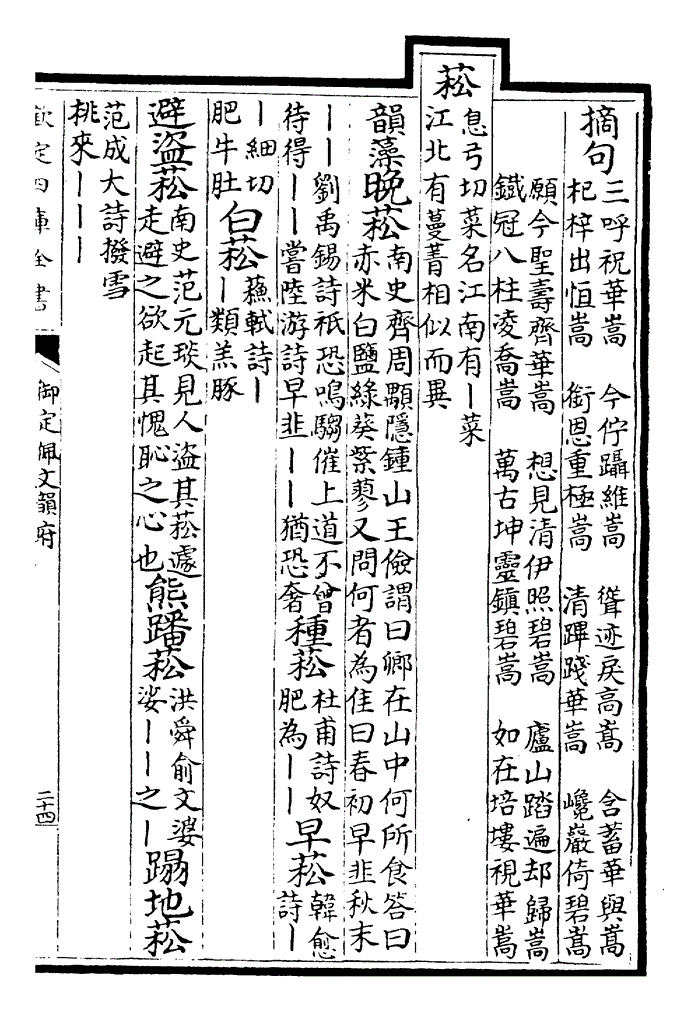 摘句三呼祝華嵩　今佇躡維嵩　聳迹戾高嵩　含蓄華與嵩
杞梓出恒嵩　銜恩重極嵩　清蹕踐華嵩　巉巖倚碧嵩
願今聖壽齊華嵩　想見清伊照碧嵩　廬山踏遍却歸嵩
鐵冠八柱凌喬嵩　萬古坤靈鎮碧嵩　如在培塿視華嵩
菘
息弓切菜名江南有丨菜
江北有蔓菁相似而異
韻藻晚菘南史齊周顒隱鍾山王儉謂曰卿在山中何所食答曰
赤米白鹽綠葵紫蓼又問何者為佳曰春初早韭秋末
丨丨劉禹錫詩祇恐鳴騶催上道不曾
待得丨丨嘗陸游詩早韭丨丨猶恐奢種菘杜甫詩奴
肥為丨丨早菘韓愈
詩丨
丨細切
肥牛肚白菘蘇軾詩丨
丨類羔豚
避盜菘南史范元琰見人盜其菘遽
走避之欲起其愧恥之心也熊蹯菘洪舜俞文婆
娑丨丨之丨蹋地菘
范成大詩撥雪
桃來丨丨丨
欽定四庫全書
御定佩文韻府
二十四